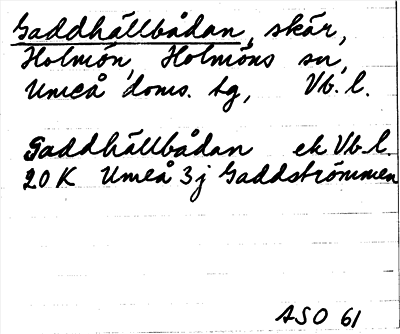 Gaddhällbådan, skär,
Holmön, Holmöns sn,
Umeå doms. tg, Vb. l.
Gaddhällbådan ek Vb. l.
20 K Umeå 3 j Gaddströmmen
ASO 61